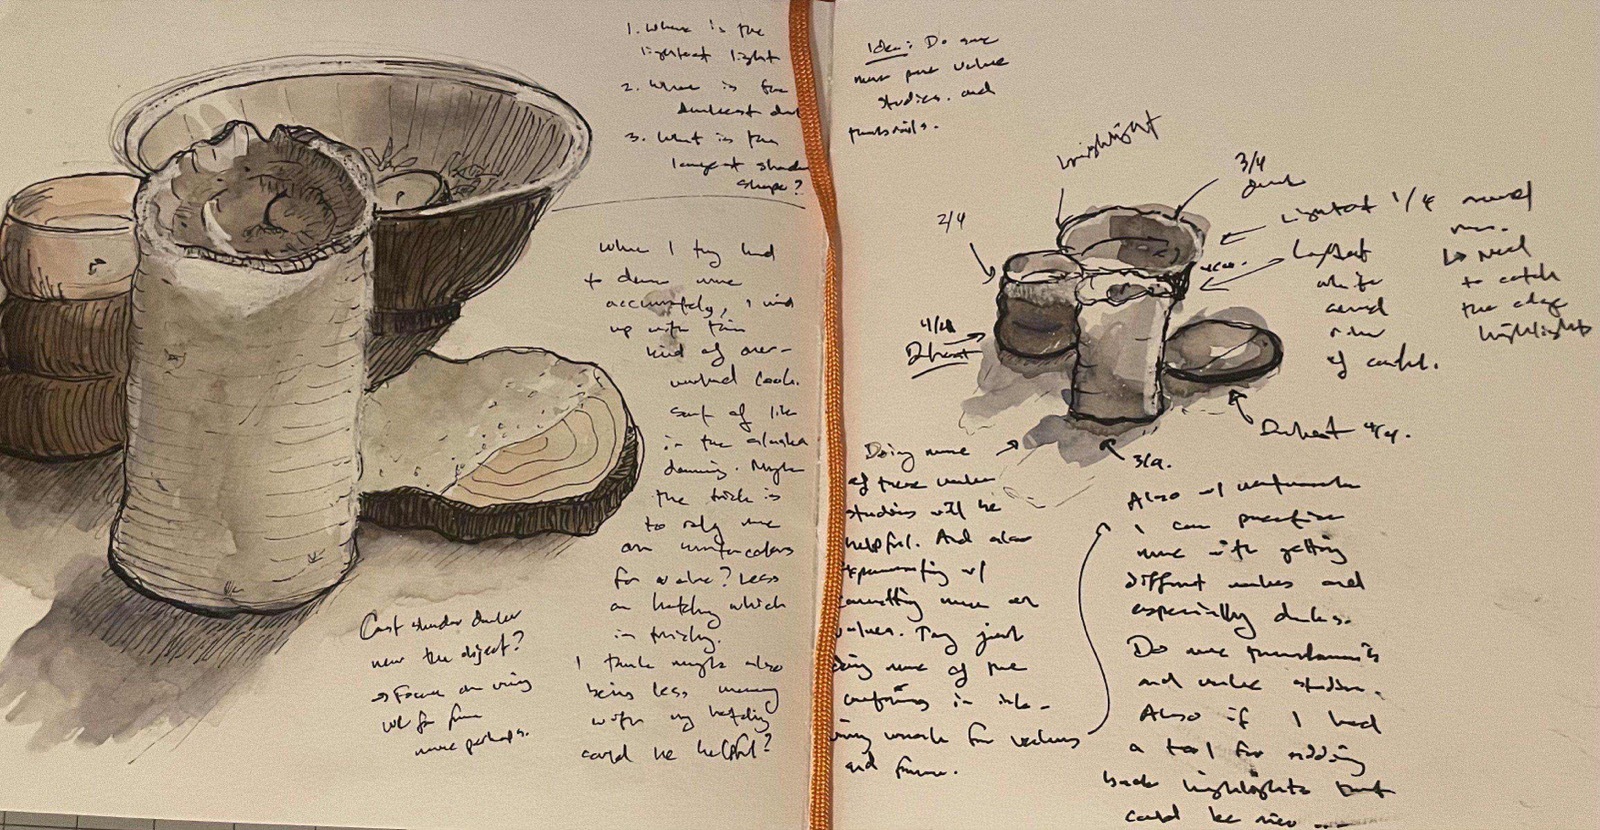 1. Where is the
lightest light
2. Where is the
darkest dark
3. What is the
largest shadow
shape?
When I try hard
to draw more
accurately, I wind
up with this
kind of over-
worked look.
Sort of like
in the alaska
drawing. Maybe
the trick is
to rely more
on watercolors
for value? Less
on hatching which
is tricky.
I think maybe also
being less
with my hatching
could be helpful?
Cast shadow darker
near the object?
→ Focus on using
for form
more perhaps.
Idea: Do some
more pure value
studies. and
thumbnails.
highlight
3/4
dark
2/4
Lightest 1/4
↳ need
to catch
the edge
highlights
Lightest
white
around
rim
of candle.
4/4
Darkest
Darkest 4/4.
3/4.
Doing more
of these value
studies will be
helpful. And also
experimenting w/
more on
values. Try just
doing more of the
contours in ink -
using wash for values
and form.
Also w/ watercolor
I can practice
more with getting
different values and
especially darks.
Do more thumbnails
and value studies.
Also if I had
a tool for adding
back highlights that
could be nice ...